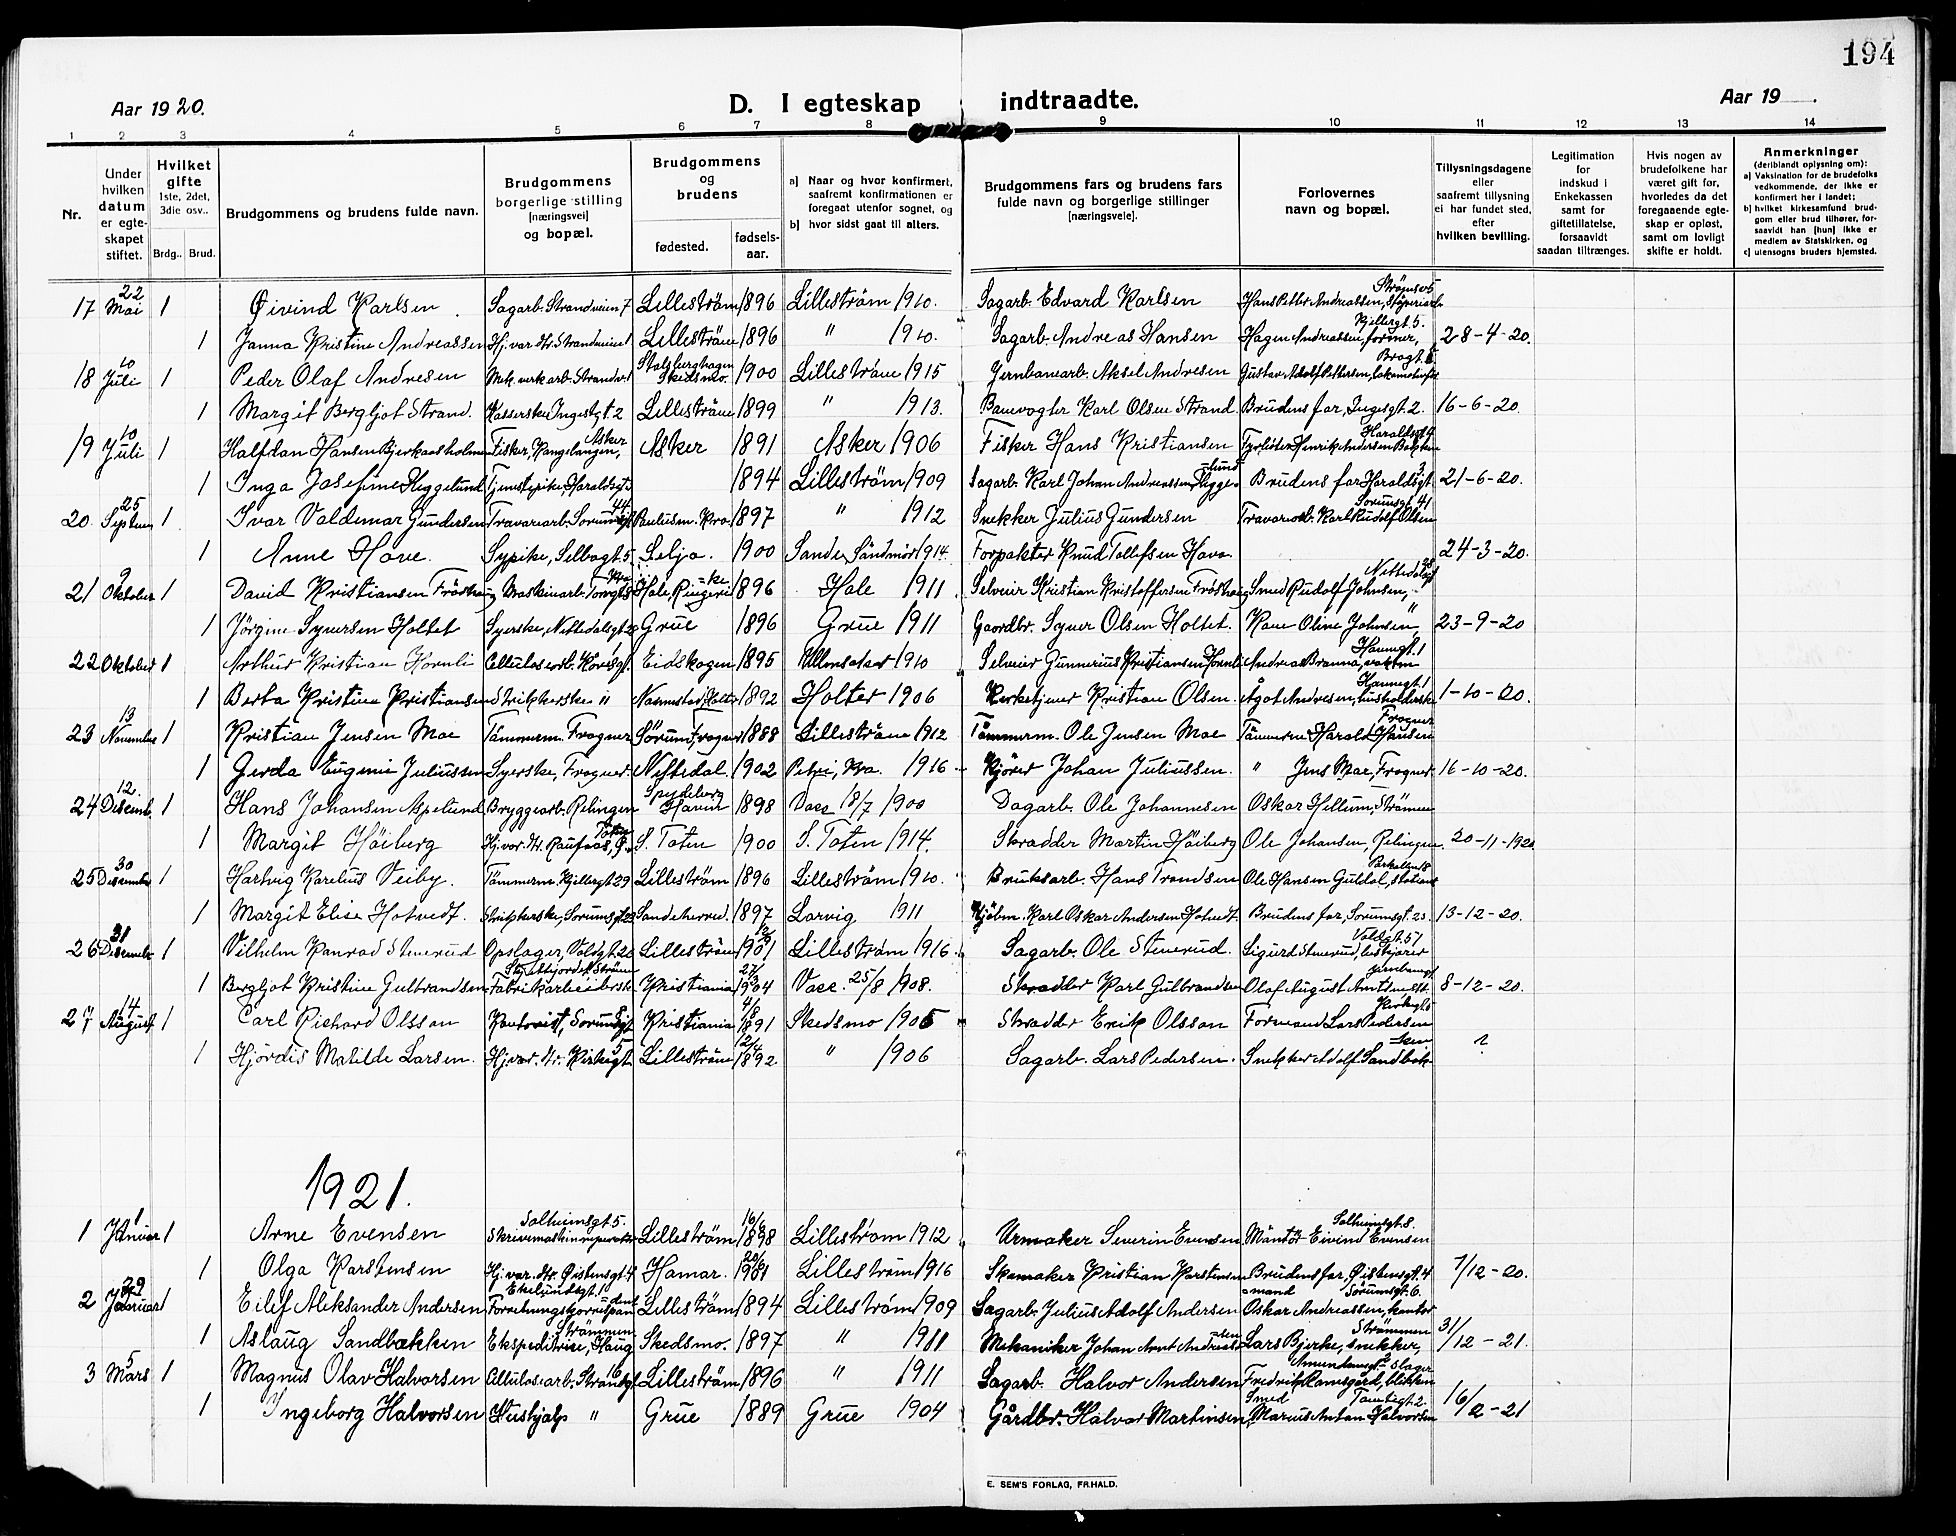 194
Aar 1920.
D. I egteskap indtraadte.
Aar 19 .
1 2 3 4 5 6 7 8 9 10 11 12 13 14
Nr.
Under hvilken datum er egteskapet stiftet.
Hvilket gifte 1ste, 2det, 3die osv..
Brdg.. Brud.
Brudgommens og brudens fulde navn.
Brudgommens borgerlige stilling [næringsvei] og bopæl.
Brudgommens og brudens
fødested. fødselsaar.
a) Naar og hvor konfirmert, saafremt konfirmationen er foregaat utenfor sognet, og
b) hvor sidst gaat til alters.
Brudgommens fars og brudens fars fulde navn og borgerlige stillinger [næringsveie].
Forlovernes navn og bopæl.
Tillysningsdagene eller saafremt tillysning ei har fundet sted, efter hvilken bevilling.
Legitimation for indskud i Enkekassen samt for giftetillatelse, forsaavidt saadan tiltrænges.
Hvis nogen av brudefolkene har været gift før, hvorledes da det foregaaende egteskap er opløst, samt om lovligt skifte er holdt.
Anmerkninger (deriblandt oplysning om): a) Vaksination for de brudefolks vedkommende, der ikke er konfirmert her i landet; b) hvilket kirkesamfund brudgom eller brud tilhører, forsaavidt han [hun] ikke er medlem av Statskirken, og c) utensogns bruders hjemsted.
17 22 Mai 1 Øivind Karlsen Sagarb. Strandveien 7 Lillestrøm 1896 Lillestrøm 1910. Sagarb. Edvard Karlsen Hans Petter Andreassen,
1 Janna Kristine Andreassen Hj. var. Str. Strandveien 1 Lillestrøm 1896 " 1910. Sagarb. Andreas Hansen Hagen Andreassen, former, Kjellergt. 5. 28-4-20.
18 10 Juli 1 Peder Olaf Andresen Mek. verk. arb. Strandv. 1 Stalsberghagen Skedsmo. 1900 Lillestrøm 1915 Jernbanearb. Aksel Andresen Gustav Adolf Pettersen,
1 Margit Bergljot Strand. Kasserske Ingesgt. 2 Lillestrøm 1899 " 1913. Banevogter Karl Olsen Strand Brudens far, Ingesgt. 2. 16-6-20.
19 10 Juli 1 Halfdan Hansen Bjerkaasholmen Fisker, Asker Asker 1891 Asker 1906 Fisker Hans Kristiansen Henrik Andersen
1 Inga Josefine Heggelund Tjenestepike, Haraldsgt. 3 1894 Lillestrøm 1909 Sagarb. Karl Johan Andreassen Heggelund Brudens far Haraldsgt. 3 21-6-20.
20. 25 Septem 1 Ivar Valdemar Gundersen Travarearb. Sorumsgt. 44 Paulusm. Kra. 1897 " 1912 Snekker Julius Gundersen Travarearb. Karl Rudolf Olsen Sorumsgt. 41
1 Anne Hove. Sypike, Selbogt. 5 Selja. 1900 Sande, Søndmør 1914. Forpakter Knud Tollefsen Hove. 24-3-20.
21 9 Oktober 1 David Kristiansen Frøshaug Maskinarb. Hole, Ringerike 1896 Hole 1911 Selveier Kristian Kristoffersen Frøshaug Smed Rudolf Johnsen, Nittedalsgt.
1 Jørgine Syversen Holtet Syerske, Nittedalsgt. Grue 1896 Grue 1911 Gaardbr. Syver Olsen Holtet. Kone Oline Johnsen " 23-9-20
22 Oktober 1 Arthur Kristian Hornli Celluloseearb. Eidskogen 1895 Ullensaker 1910 Selveier Gunnerius Kristiansen Hornli Andreas Branna, Hannegt. 1
1 Berta Kristine Kristiansen Strikkerske " Nannestad, Holter 1892 Holter 1906 Kirketjener Kristian Olsen. Ågot Andresen, husholderske Hannegt. 1 1-10-20.
23 13 November 1 Kristian Jensen Moe Tømmerm. Frogner Sørum, Frogner 1888 Lillestrøm 1912 Tømmerm. Ole Jensen Moe Tømmerm. Harald Hansen Frogner
1 Gerda Eugenie Juliussen Syerske, Frogner. Nittedal. 1902 Petri, Kra. 1916 Kjører Johan Juliussen. " Jens Moe, Frogner 16-10-20.
24 12. Desemb. 1 Hans Johansen Aspelund Bryggearb. Relingen Spydeberg Hovin 1898 Vacc 18/7 1900 Dagarb. Ole Johannesen Oskar Hellum, Strømmen
1 Margit Høiberg Hj. var. Str. Raufoss, Ø. Toten S. Toten 1900 S. Toten 1914. Skrædder Martin Høiberg Ole Johansen, Relingen. 20-11-1920
25 30 Desember 1 Hartvig Karelius Veiby. Tømmerm. Kjellergt 29 Lillestrøm 1896 Lillestrøm 1910. Bruksarb. Hans Trondsen Ole Hansen Guldal,
1 Margit Elise Hotvedt. Strikkerske, Sorumsgt. 23 Sandeherred. 1897 Larvig 1911 Kjøbm. Karl Oskar Andersen Hotvedt. Brudens far, Sorumsgt. 23. 13-12-20.
26 31 Desember 1 Vilhelm Konrad Stenerud Opslager, Voldgt. 26 Lillestrøm 1901 Lillestrøm 1916 Sagarb. Ole Stenerud. Sigurd Stenerud, Voldgt. 57
1 Bergljot Kristine Gulbrandsen Fabrikarbeiderske Kristiania 27/3 1904 Vacc. 25/8 1908. Skrædder Karl Gulbrandsen Olaf August Amundsen 8-12-20.
27 14 August 1 Carl Richard Olsson Kontorist, Sorumsgt. Kristiania 4/8 1891 Skedsmo 1905 Skrædder Erik Olsson Formand Lars Pedersen Kirkegt. 5
1 Hjørdis Matilde Larsen. Hj. var. Str. Kirkegt. 5 Lillestrøm 1892 " 1906 Sagarb. Lars Pedersen. Snekker Adolf Sandbækken ?
1921.
1 1 Januar 1 Arne Evensen Solheimsgt. 5. Skrivemaskinreparatør Lillestrøm 16/6 1898 Lillestrøm 1912 Urmaker Severin Evensen Montør Eivind Evensen Solheimsgt. 8.
1 Olga Karstensen Hj. var. Str. Øistensgt. 4 Hamar. 1901 Lillestrøm 1916 Skomaker Kristian Karstensen Brudens far, Øistensgt. 4 7/12-20.
2 29 Januar 1 Eilef Aleksander Andersen Forretningskorrespondent Lillestrøm 1894 Lillestrøm 1909 Sagarb. Julius Adolf Andersen Oskar Andreassen, kontormand Sørumsgt. 6.
1 Aslaug Sandbækken Ekspeditrise, Haug Strømmen Skedsmo. 1897 " 1911 Mekaniker Johan Arnt Andersen Lars Bjerke, snekker, Strømmen 31/12-21.
3 5 Mars 1 Magnus Olav Halvorsen Cellulosearb. Strandgt. 16 Lillestrøm 1896 " 1911 Sagarb. Halvor Andersen Fredrik Ramsgård, blikkenslager Amundsensgt. 2
1 Ingeborg Halvorsen Hushjælp " Grue 1889 Grue 1904 Gårdbr. Halvor Martinsen Smed Marius Anton Halvorsen 16/2-21
E. SEM'S FORLAG, FR.HALD.